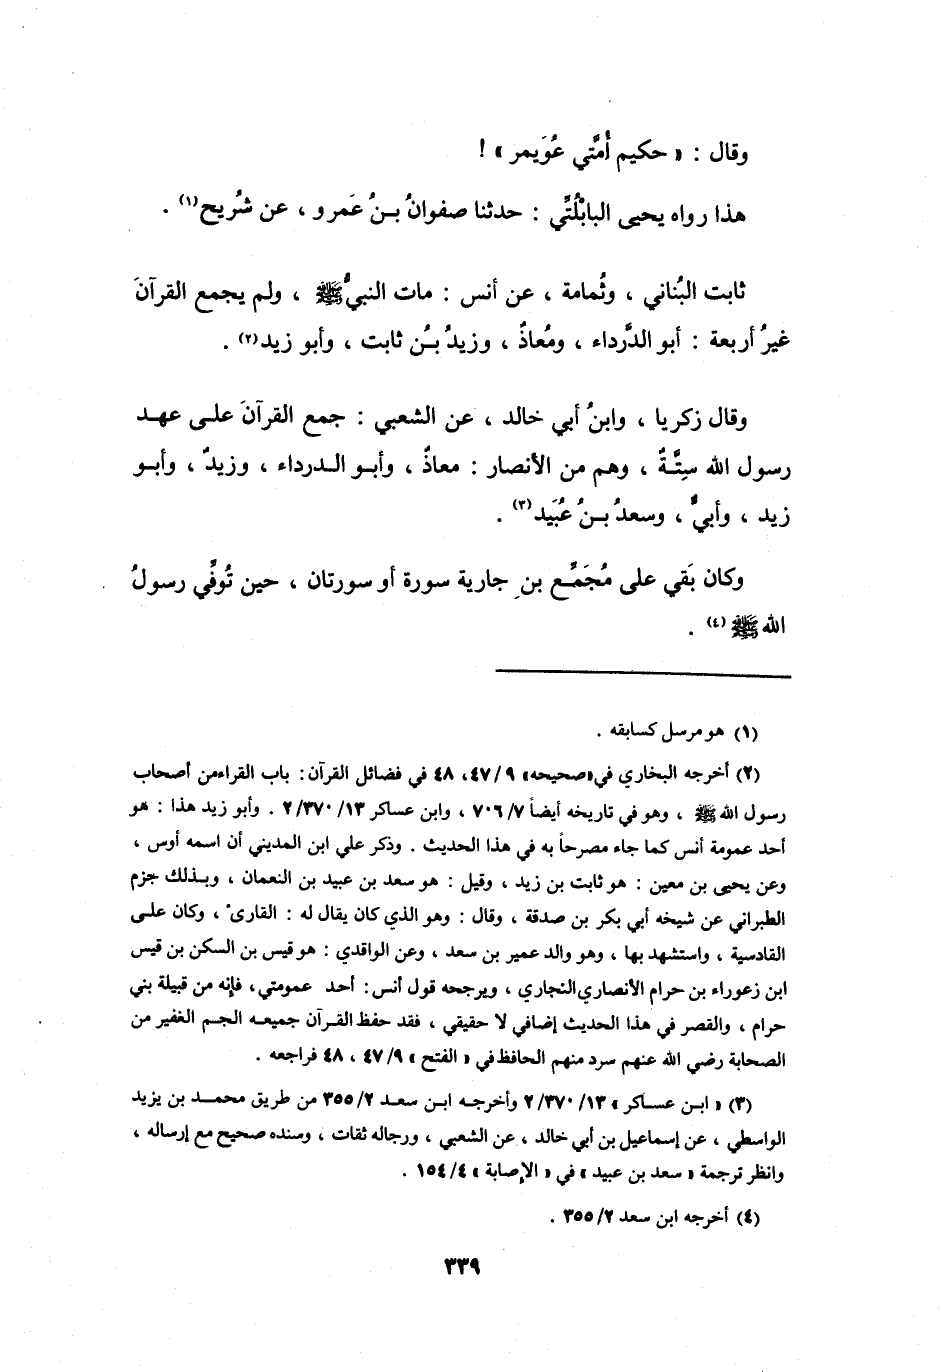 وقال : « حكيم أُمَّتي عُوَيمر » !
هذا رواه يحيى البابْلُتِّي : حدثنا صفوانُ بـنُ عَمرو ، عن شُريح(١) .
ثابت البُناني ، وثُمامة ، عن أنس : مات النبيُّ ﷺ ، ولم يجمع القرآنَ
غيرُ أربعة : أبو الدَّرداء ، ومُعاذٌ ، وزيدُ بـنُ ثابت ، وأبو زيد(٢) .
وقال زكريا ، وابنُ أبي خالد ، عن الشعبي : جمع القرآنَ علـى عهـد
رسول الله سِتَّـةٌ ، وهم من الأنصار : معاذٌ ، وأبـو الـدرداء ، وزيدٌ ، وأبـو
زيد ، وأبيٌّ ، وسعدُ بـنُ عُبَيد(٣) .
وكان بَقي على مُجَمِّـع بن جارية سورة أو سورتان ، حين تُوفِّي رسولُ
الله ﷺ (٤) .
(١) هو مرسل كسابقه .
(٢) أخرجه البخاري في «صحيحه» ٩ /٤٧، ٤٨ في فضائل القرآن: باب القراءمن أصحاب
رسول الله ﷺ ، وهو في تاريخه أيضاً ٧/ ٧٠٦ ، وابن عساكر ١٣/ ٣٧٠/ ٢ . وأبو زيد هذا : هو
أحد عمومة أنس كما جاء مصرحاً به في هذا الحديث . وذكر علي ابن المديني أن اسمه أوس ،
وعن يحيى بن معين : هو ثابت بن زيد ، وقيل : هو سعد بن عبيد بن النعمان ، وبـذلك جزم
الطبراني عن شيخه أبي بكر بن صدقة ، وقال : وهو الذي كان يقال له : القارىء ، وكان علـى
القادسية ، واستشهد بها ، وهو والد عمير بن سعد ، وعن الواقدي : هو قيس بن السكن بن قيس
ابن زعوراء بن حرام الأنصاري النجاري ، ويرجحه قول أنس: أحد عمومتي، فإنه من قبيلة بني
حرام ، والقصر في هذا الحديث إضافي لا حقيقي ، فقد حفظ القـرآن جميعـه الجـم الغفير من
الصحابة رضي الله عنهم سرد منهم الحافظ في « الفتح » ٩/ ٤٧ ، ٤٨ فراجعه .
(٣) « ابـن عسـاكر » ١٣/ ٣٧٠/ ٢ وأخرجـه ابـن سعـد ٢/ ٣٥٥ من طريق محمـد بن يزيد
الواسطي ، عن إسماعيل بن أبي خالد ، عن الشعبي ، ورجاله ثقات ، وسنده صحيح مع إرساله ،
وانظر ترجمة « سعد بن عبيد » في « الإصابة » ٤/ ١٥٤ .
(٤) أخرجه ابن سعد ٢/ ٣٥٥ .
٣٣٩